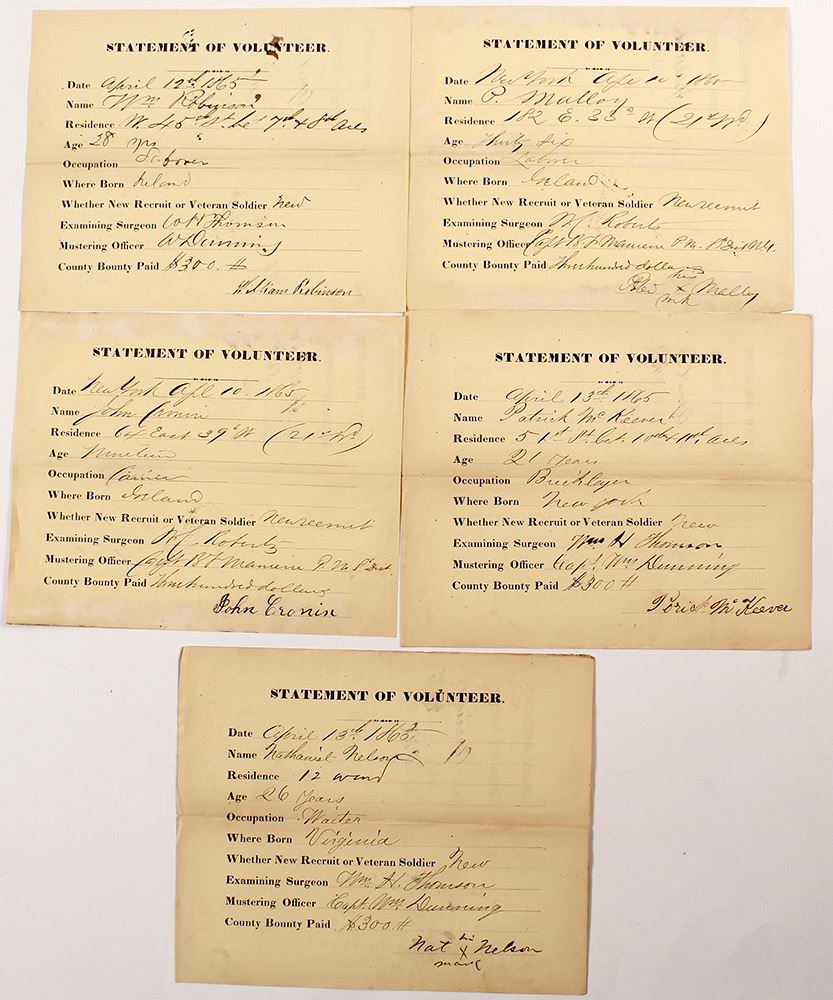 STATEMENT OF VOLUNTEER.
Date April 12th 1865
Name Wm Robinson
Residence W. 45th St. bet 7th & 8th Aves
Age 28 yrs
Occupation Laborer
Where Born Ireland
Whether New Recruit or Veteran Soldier New
Examining Surgeon W H Thomson
Mustering Officer W Dunning
County Bounty Paid $300.#
William Robinson
STATEMENT OF VOLUNTEER.
Date New York Apl 1865
Name P. Malloy
Residence 182 E. 33d St (21st Wd)
Age Thirty six
Occupation Laborer
Where Born Ireland
Whether New Recruit or Veteran Soldier New recruit
Examining Surgeon Roberts
Mustering Officer Capt B F Manierre P. M. Dist N.Y.
County Bounty Paid Three hundred dollars
his
X Malloy
mrk
STATEMENT OF VOLUNTEER.
Date New York Apl 10. 1865
Name John Cronin
Residence 64 East 39th St (21st Wd)
Age Nineteen
Occupation
Where Born Ireland
Whether New Recruit or Veteran Soldier New recruit
Examining Surgeon Roberts
Mustering Officer Capt B F Manierre P. M. Dist.
County Bounty Paid Three hundred dollars
John Cronin
STATEMENT OF VOLUNTEER.
Date April 13th 1865
Name Patrick McKeever
Residence 51st St. bet. 10th & 11th Aves
Age 21 years
Occupation Bricklayer
Where Born New York
Whether New Recruit or Veteran Soldier New
Examining Surgeon Wm H Thomson
Mustering Officer Capt. Wm Dunning
County Bounty Paid $300#
McKeever
STATEMENT OF VOLUNTEER.
Date April 13th 1865
Name Nathaniel Nelson
Residence 12 Ward
Age 26 years
Occupation Waiter
Where Born Virginia
Whether New Recruit or Veteran Soldier New
Examining Surgeon Wm. H. Thomson
Mustering Officer Capt. Wm. Dunning
County Bounty Paid $300.#
his
Nat X Nelson
mark